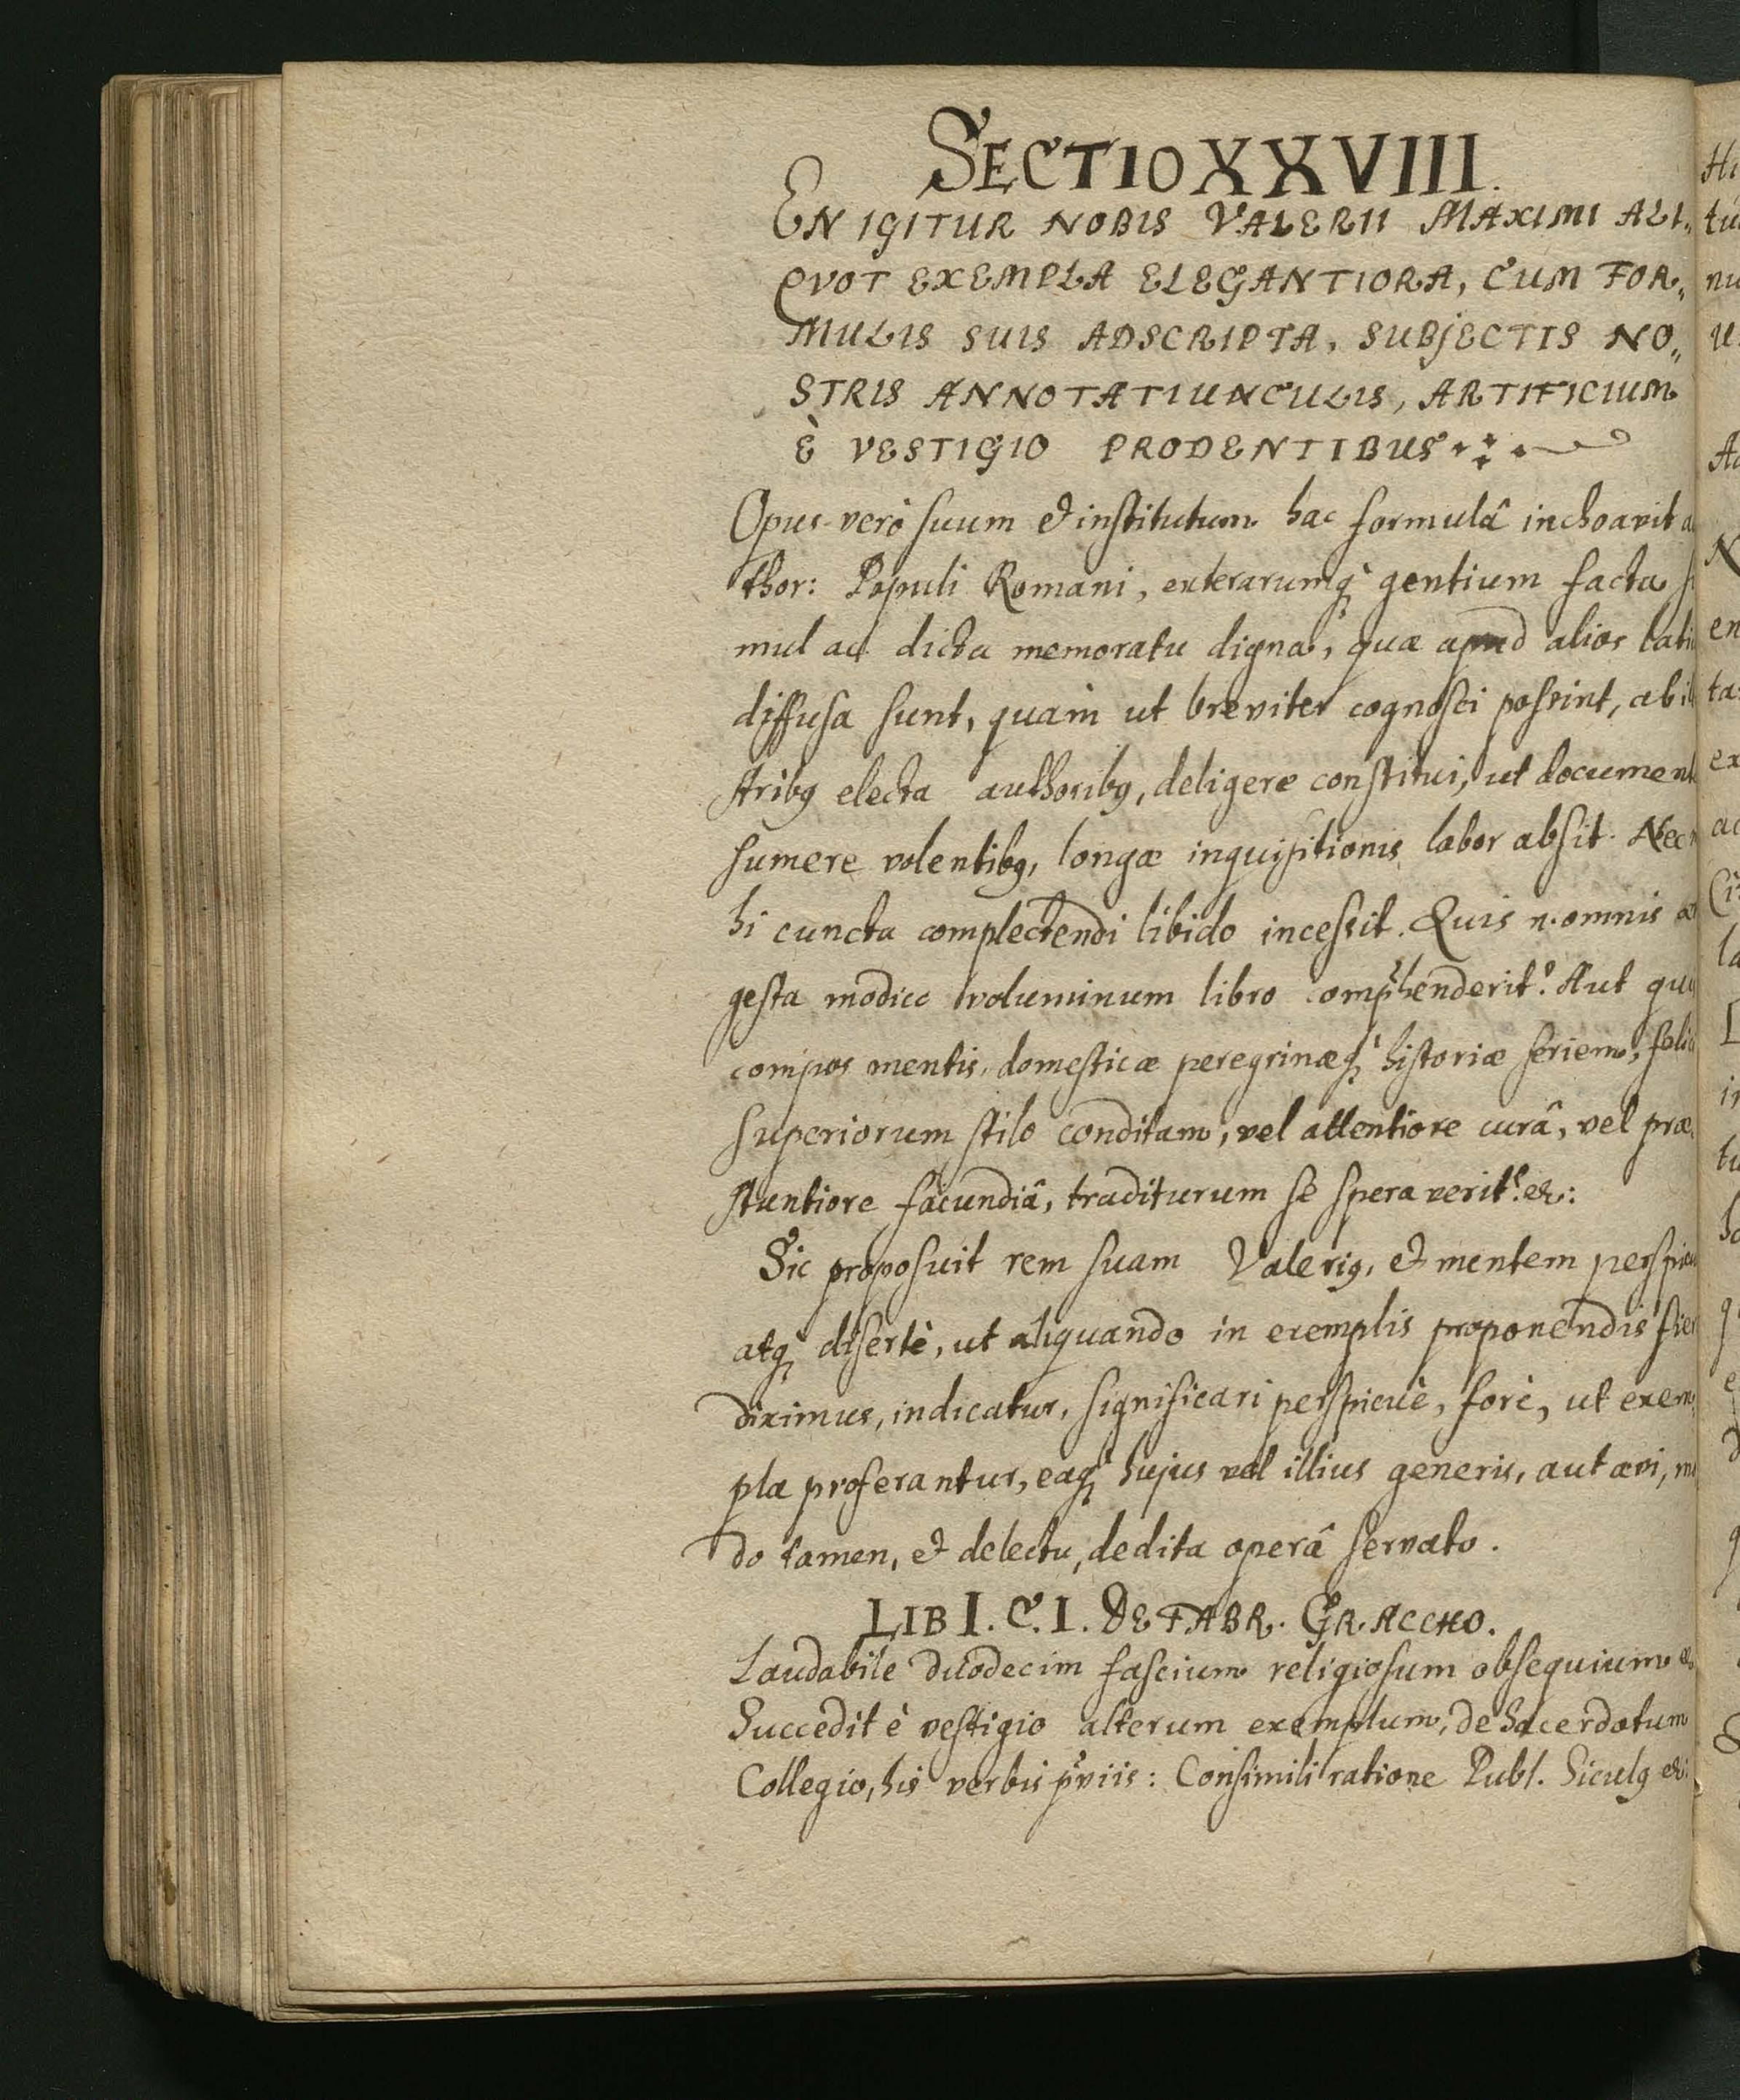 SECTIO XXVIII.
EN IGITUR NOBIS VALERII MAXIMI ALI„
QVOT EXEMPLA ELEGANTIORA, CUM FOR„
MULIS SUIS ADSCRIPTA, SUBJECTIS NO„
STRIS ANNOTATIUNCULIS, ARTIFICIUM
È VESTIGIO PRODENTIBUS
Opus verò suum et institutum hac formulâ inchoavit a
thor: Populi Romani, exterarumq; gentium facta si
mul ac dicta memoratu digna, quæ apud alios lati
diffusa sunt, quàm ut breviter cognosci possint, ab il
stribq electa authoribq, deligere constitui, ut document
sumere volentibq, longæ inquisitionis labor absit. Nec m
hi cuncta complectendi libido incessit. Quis n. omnis æ
gesta modico voluminum libro comp̃henderit? Aut quis
compos mentis, domesticæ peregrinæq; historiæ seriem, felic
superiorum stilo conditam, vel attentiore curâ, vel præ„
stantiore facundiâ, traditurum se speraverit? &:
Sic proposuit rem suam Valeriq, et mentem perspicu
atq; disertè, ut aliquando in exemplis proponendis fier
diximus, indicatur, significari perspicuè, forè, ut exem„
pla proferantur, eaq; hujus vel illius generis, aut ævi, mo
do tamen, et delectu, dedita operâ servato.
LIB I. C. I. DE FABR. GRACCHO.
Laudabile duodecim fascium religiosum obsequium &
Succedit è vestigio alterum exemplum, de Sacerdotum
Collegio, his verbis p̃viis: Consimili ratione Publ. Siculq &:
Hi
tu
nu
Ac
N
en
ta
ex
ac
la
in
tu